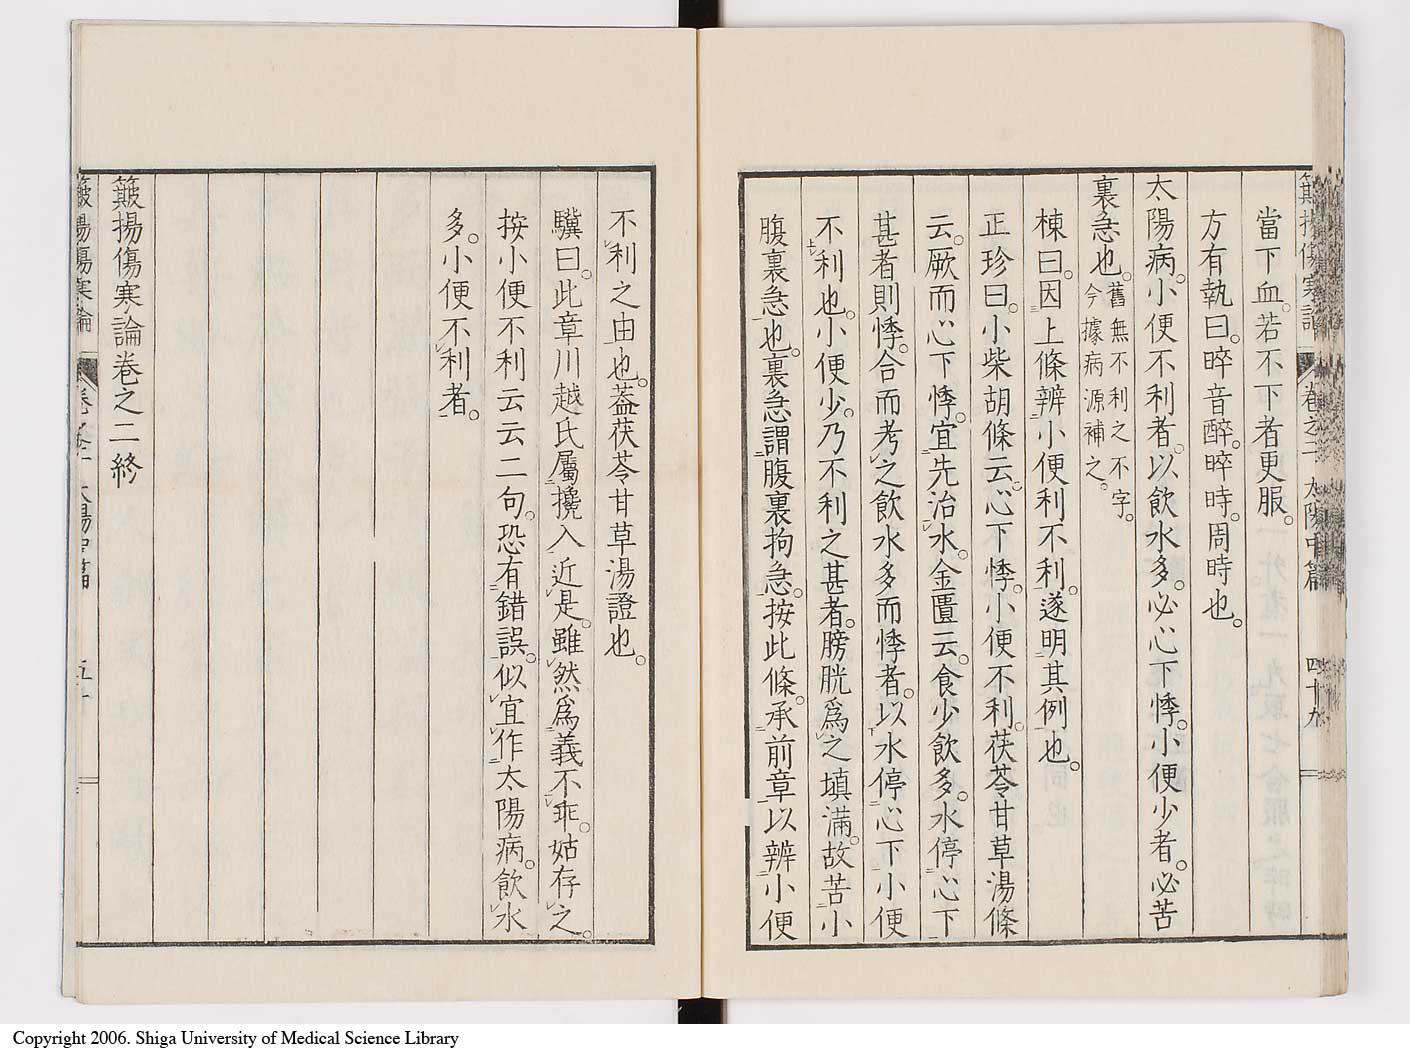 當下血。若不下者更服。
方有執曰。晬音醉。晬時。周時也。
太陽病。小便不利者。以飲水多。必心下悸。小便少者。必苦
裏急也。舊無不利之不字。
今據病源補之。
棟曰。因上條辨小便利不利。遂明其例也。
正珍曰。小柴胡條云。心下悸。小便不利。茯苓甘草湯條
云。厥而心下悸。宜先治水。金匱云。食少飲多。水停心下
甚者則悸。合而考之。飲水多而悸者。以水停心下小便
不利也。小便少。乃不利之甚者。膀胱爲之填滿。故苦小
腹裏急也。裏急謂腹裏拘急。按此條。承前章以辨小便
不利之由也。蓋茯苓甘草湯證也。
驥曰。此章川越氏屬攙入近是。雖然爲義不乖。姑存之。
按小便不利云云二句。恐有錯誤。似宜作太陽病。飲水
多。小便不利者。
簸揚傷寒論卷之二終
簸揚傷寒論 卷之二 太陽中篇 五十